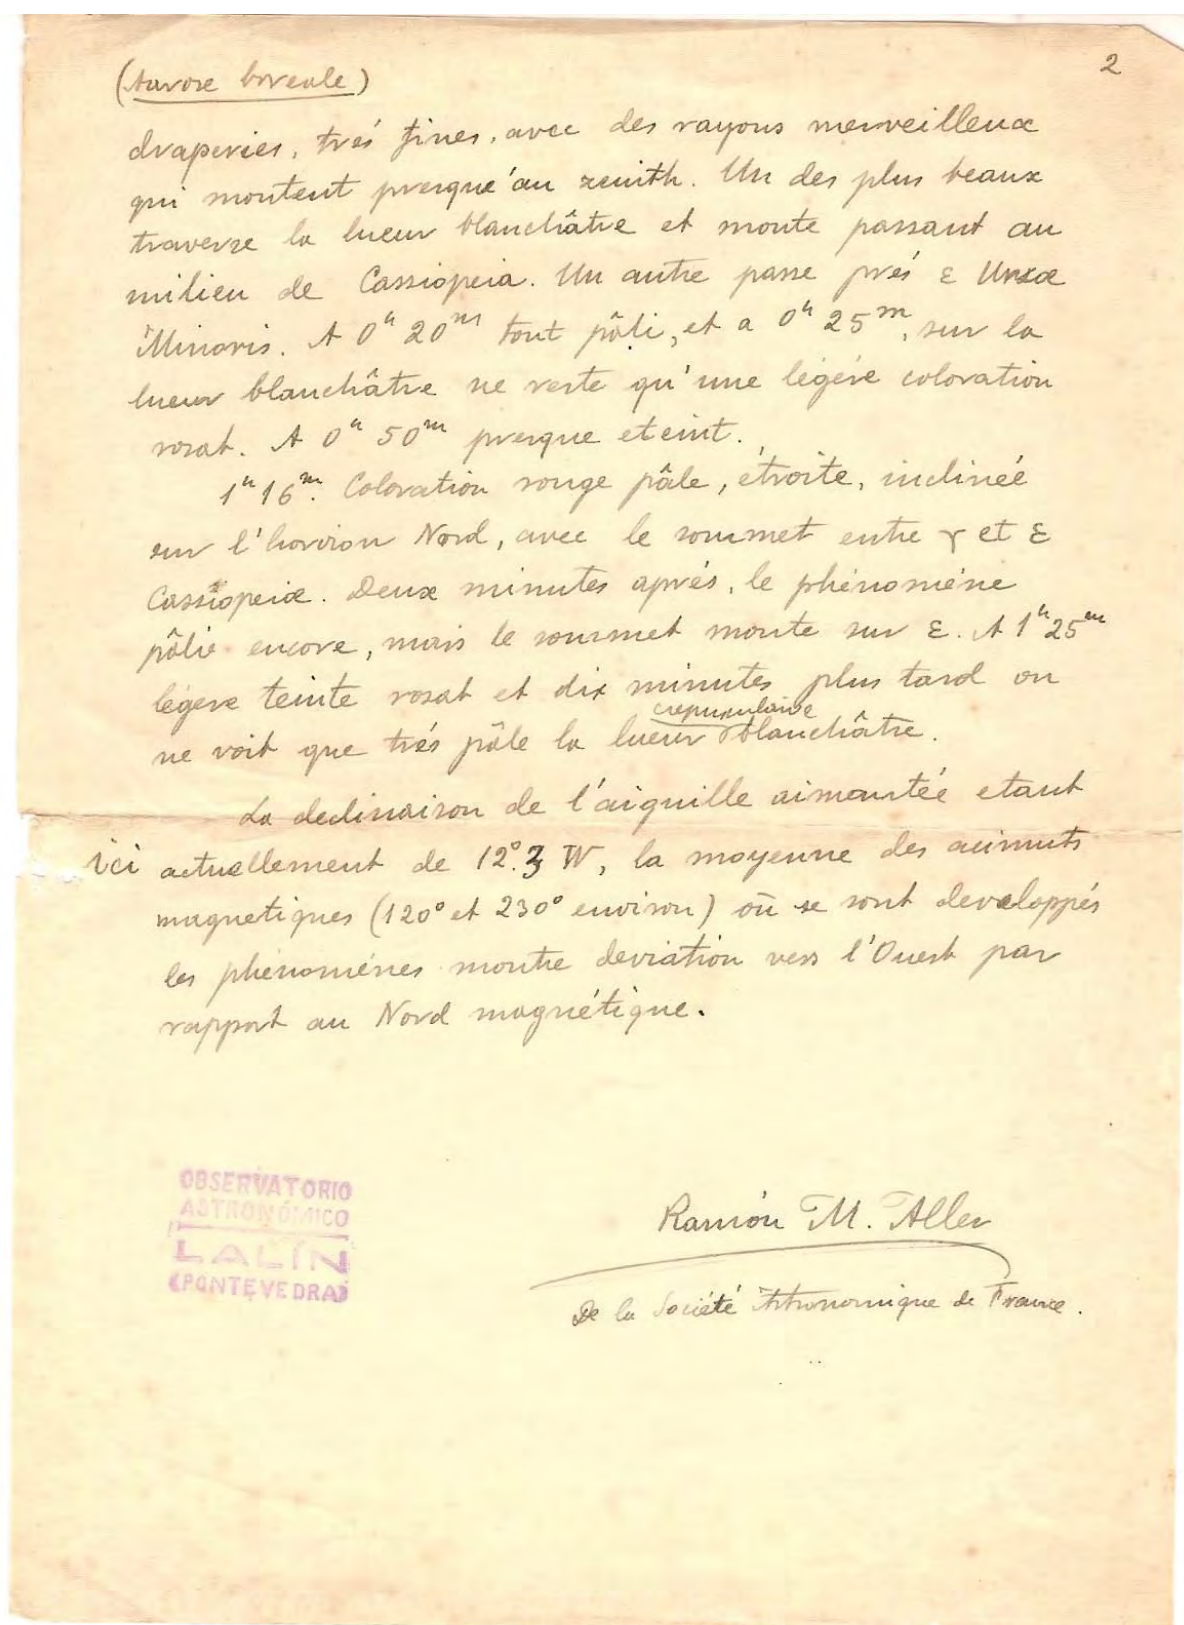 2
(Aurore boreale)
draperies, trés fines, avec des rayons merveilleux
qui montent presque'au zenith. Un des plus beaux
traverse la lueur blanchâtre et monte passant au
milieu de Cassiopeia. Un autre passe prés ε Ursæ
Minoris. A 0h 20m tout pâli, et a 0h 25m, sur la
lueur blanchâtre ne reste qu'une légére coloration
rosat. A 0h 50m presque eteint.
1h 16m. Coloration rouge pâle, étroite, inclineé
sur l'horizon Nord, avec le sommet entre γ et ε
Cassiopeiæ. Deux minutes aprés, le phénoméne
pâlie encore, mais le sommet monte sur ε. A 1h 25m
légere teinte rosat et dix minutes plus tard on
crepusculaire
ne voit que trés pâle la lueur blanchâtre.
La declinaison de l'aiguille aimanteé etant
ici actuellement de 12°.3 W, la moyenne des acimuts
magnetiques (120° et 230° environ) oū se sont developpés
les phénoménes montre deviation vers l'Ouest par
rapport au Nord magnétique.
OBSERVATORIO
ASTRONÓMICO
LALÍN
(PONTEVEDRA)
Ramón M. Aller
De la Société Astronomique de France.